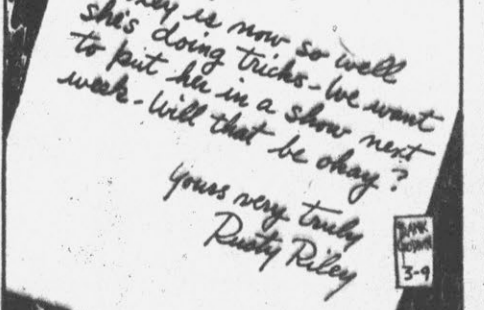 is now so well
she's doing tricks - We want
to put her in a show next
week - Will that be okay?
Yours very truly
Rusty Riley
3-9